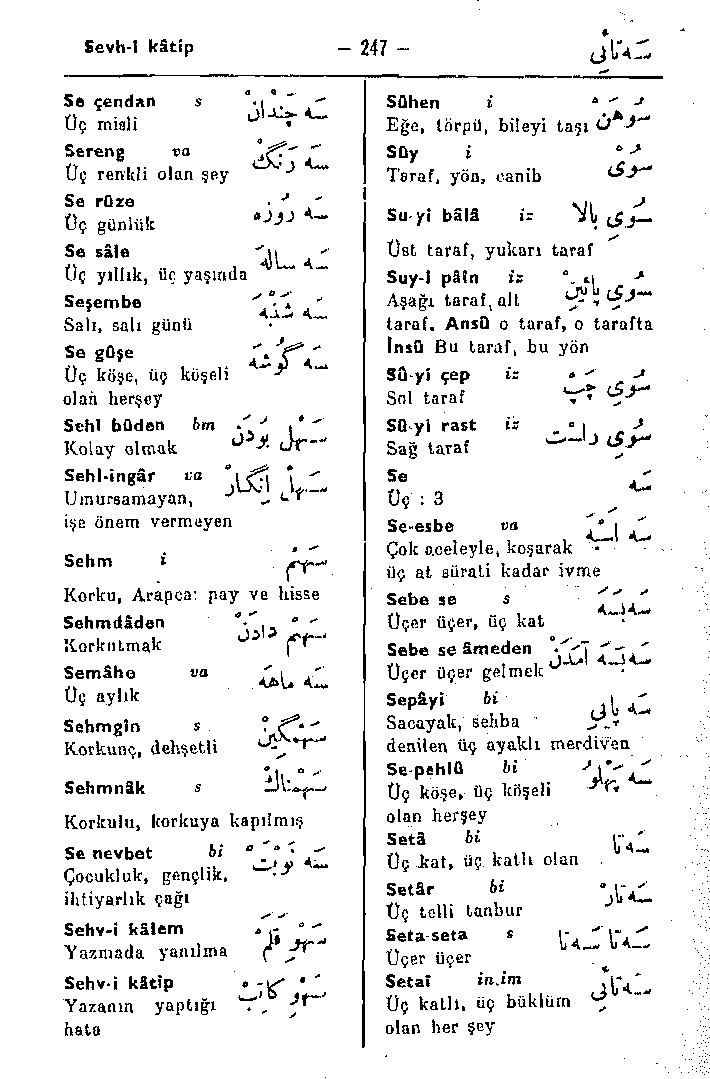 Sevh-i kâtip – 247 – سَه تَائِی
Se çendan s سَه چَنْدَانْ
Üç misli
Sereng va سَه رَنگْ
Üç renkli olan şey
Se rûze سَه رُوزَه
Üç günlük
Se sâle سَه سَالَه
Üç yıllık, üç yaşında
Seşembe سَه شَنْبَه
Salı, salı günü
Se gûşe سَه گُوشَه
Üç köşe, üç köşeli
olan herşey
Sehl bûden bm سَهْل بُودَنْ
Kolay olmak
Sehl-ingâr va سَهْل اِنْگَارْ
Umursamayan,
işe önem vermeyen
Sehm i سَهْمْ
Korku, Arapca: pay ve hisse
Sehmdâden سَهْم دَادَنْ
Korkutmak
Semâhe va سَه مَاهَه
Üç aylık
Sehmgîn s سَهْمگِینْ
Korkunç, dehşetli
Sehmnâk s سَهْمْنَاكْ
Korkulu, korkuya kapılmış
Se nevbet bi سَه نَوْبَتْ
Çocukluk, gençlik,
ihtiyarlık çağı
Sehv-i kâlem سَهْوِ قَلَمْ
Yazmada yanılma
Sehv-i kâtip سَهْوِ كَاتِبْ
Yazanın yaptığı
hata
Sûhen i سُوهَنْ
Eğe, törpü, bileyi taşı
Sûy i سُویْ
Taraf, yön, canib
Su-yi bâlâ iz سُویِ بَالَا
Üst taraf, yukarı taraf
Suy-i pâîn iz سُویِ پَائِینْ
Aşağı taraf, alt
taraf. Ansû o taraf, o tarafta
İnsû Bu taraf, bu yön
Sû-yi çep iz سُویِ چَپْ
Sol taraf
Sû-yi rast iz سُویِ رَاسْتْ
Sağ taraf
Se سَه
Üç : 3
Se-esbe va سَه اَسْبَه
Çok aceleyle, koşarak
üç at sürati kadar ivme
Sebe se s سَه بَسَه
Üçer üçer, üç kat
Sebe se âmeden سَه بَسَه آمَدَنْ
Üçer üçer gelmek
Sepâyi bi سَه پَایِی
Sacayak, sehba
denilen üç ayaklı merdiven
Se-pehlû bi سَه پَهْلُو
Üç köşe, üç köşeli
olan herşey
Setâ bi سَه تَا
Üç kat, üç katlı olan
Setâr bi سَه تَارْ
Üç telli tanbur
Seta-seta s سَه تَا سَه تَا
Üçer üçer
Setaî in.im سَه تَائِی
Üç katlı, üç büklüm
olan her şey